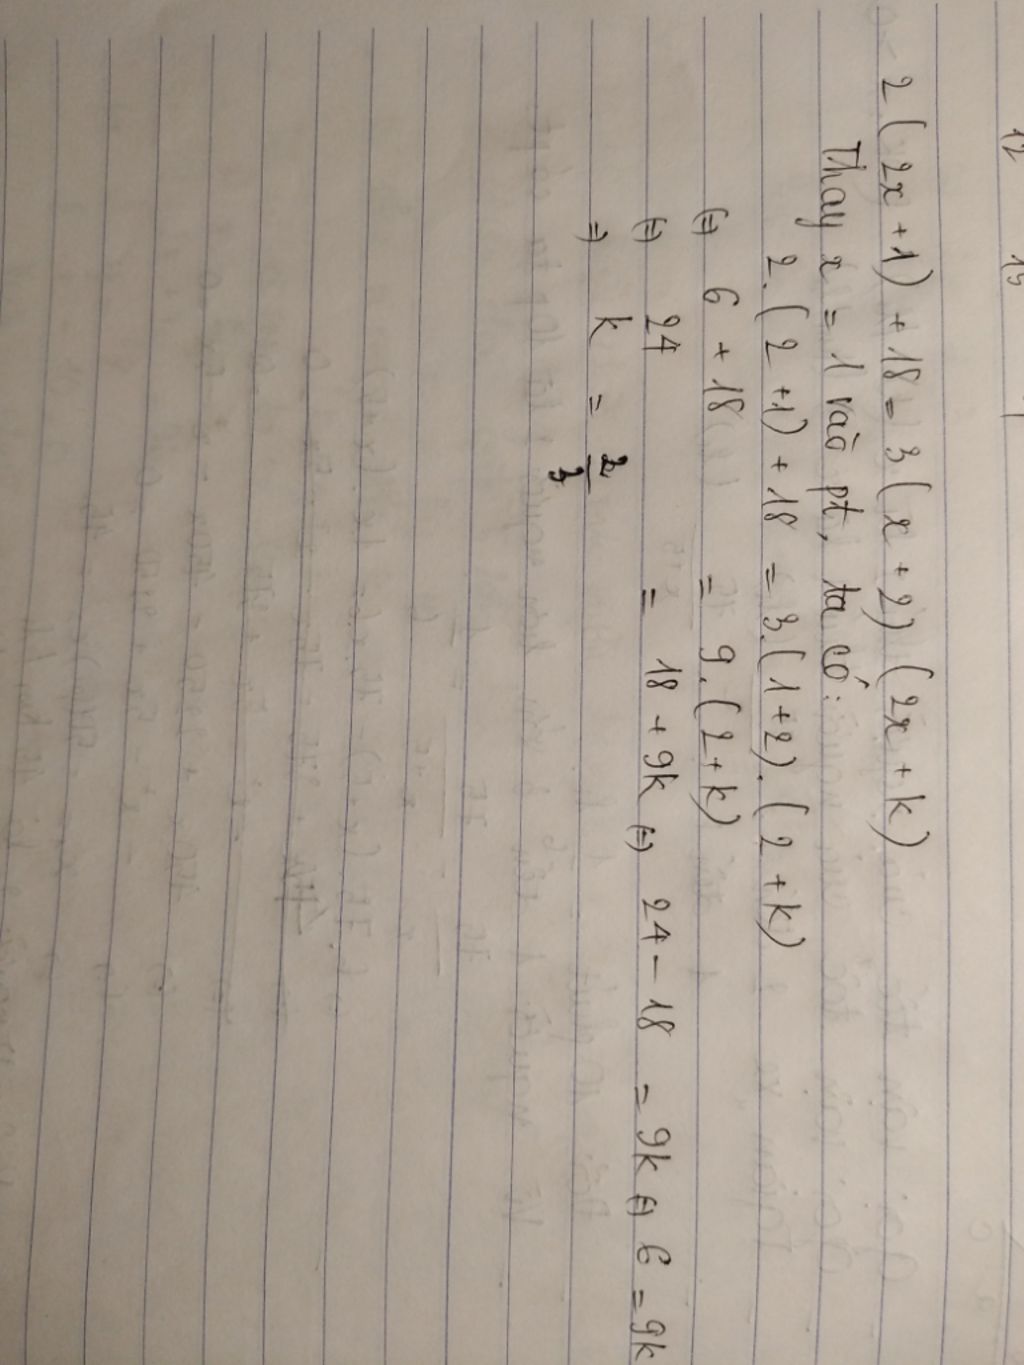 12 15
2 (2x + 1) + 18 = 3 (x + 2) (2x + k)
Thay x = 1 vào pt, ta có:
2. (2 + 1) + 18 = 3. (1 + 2). (2 + k)
(=) 6 + 18 = 9. (2 + k)
(=) 24 = 18 + 9k (=) 24 - 18 = 9k (=) 6 = 9k
=) k = 2/3